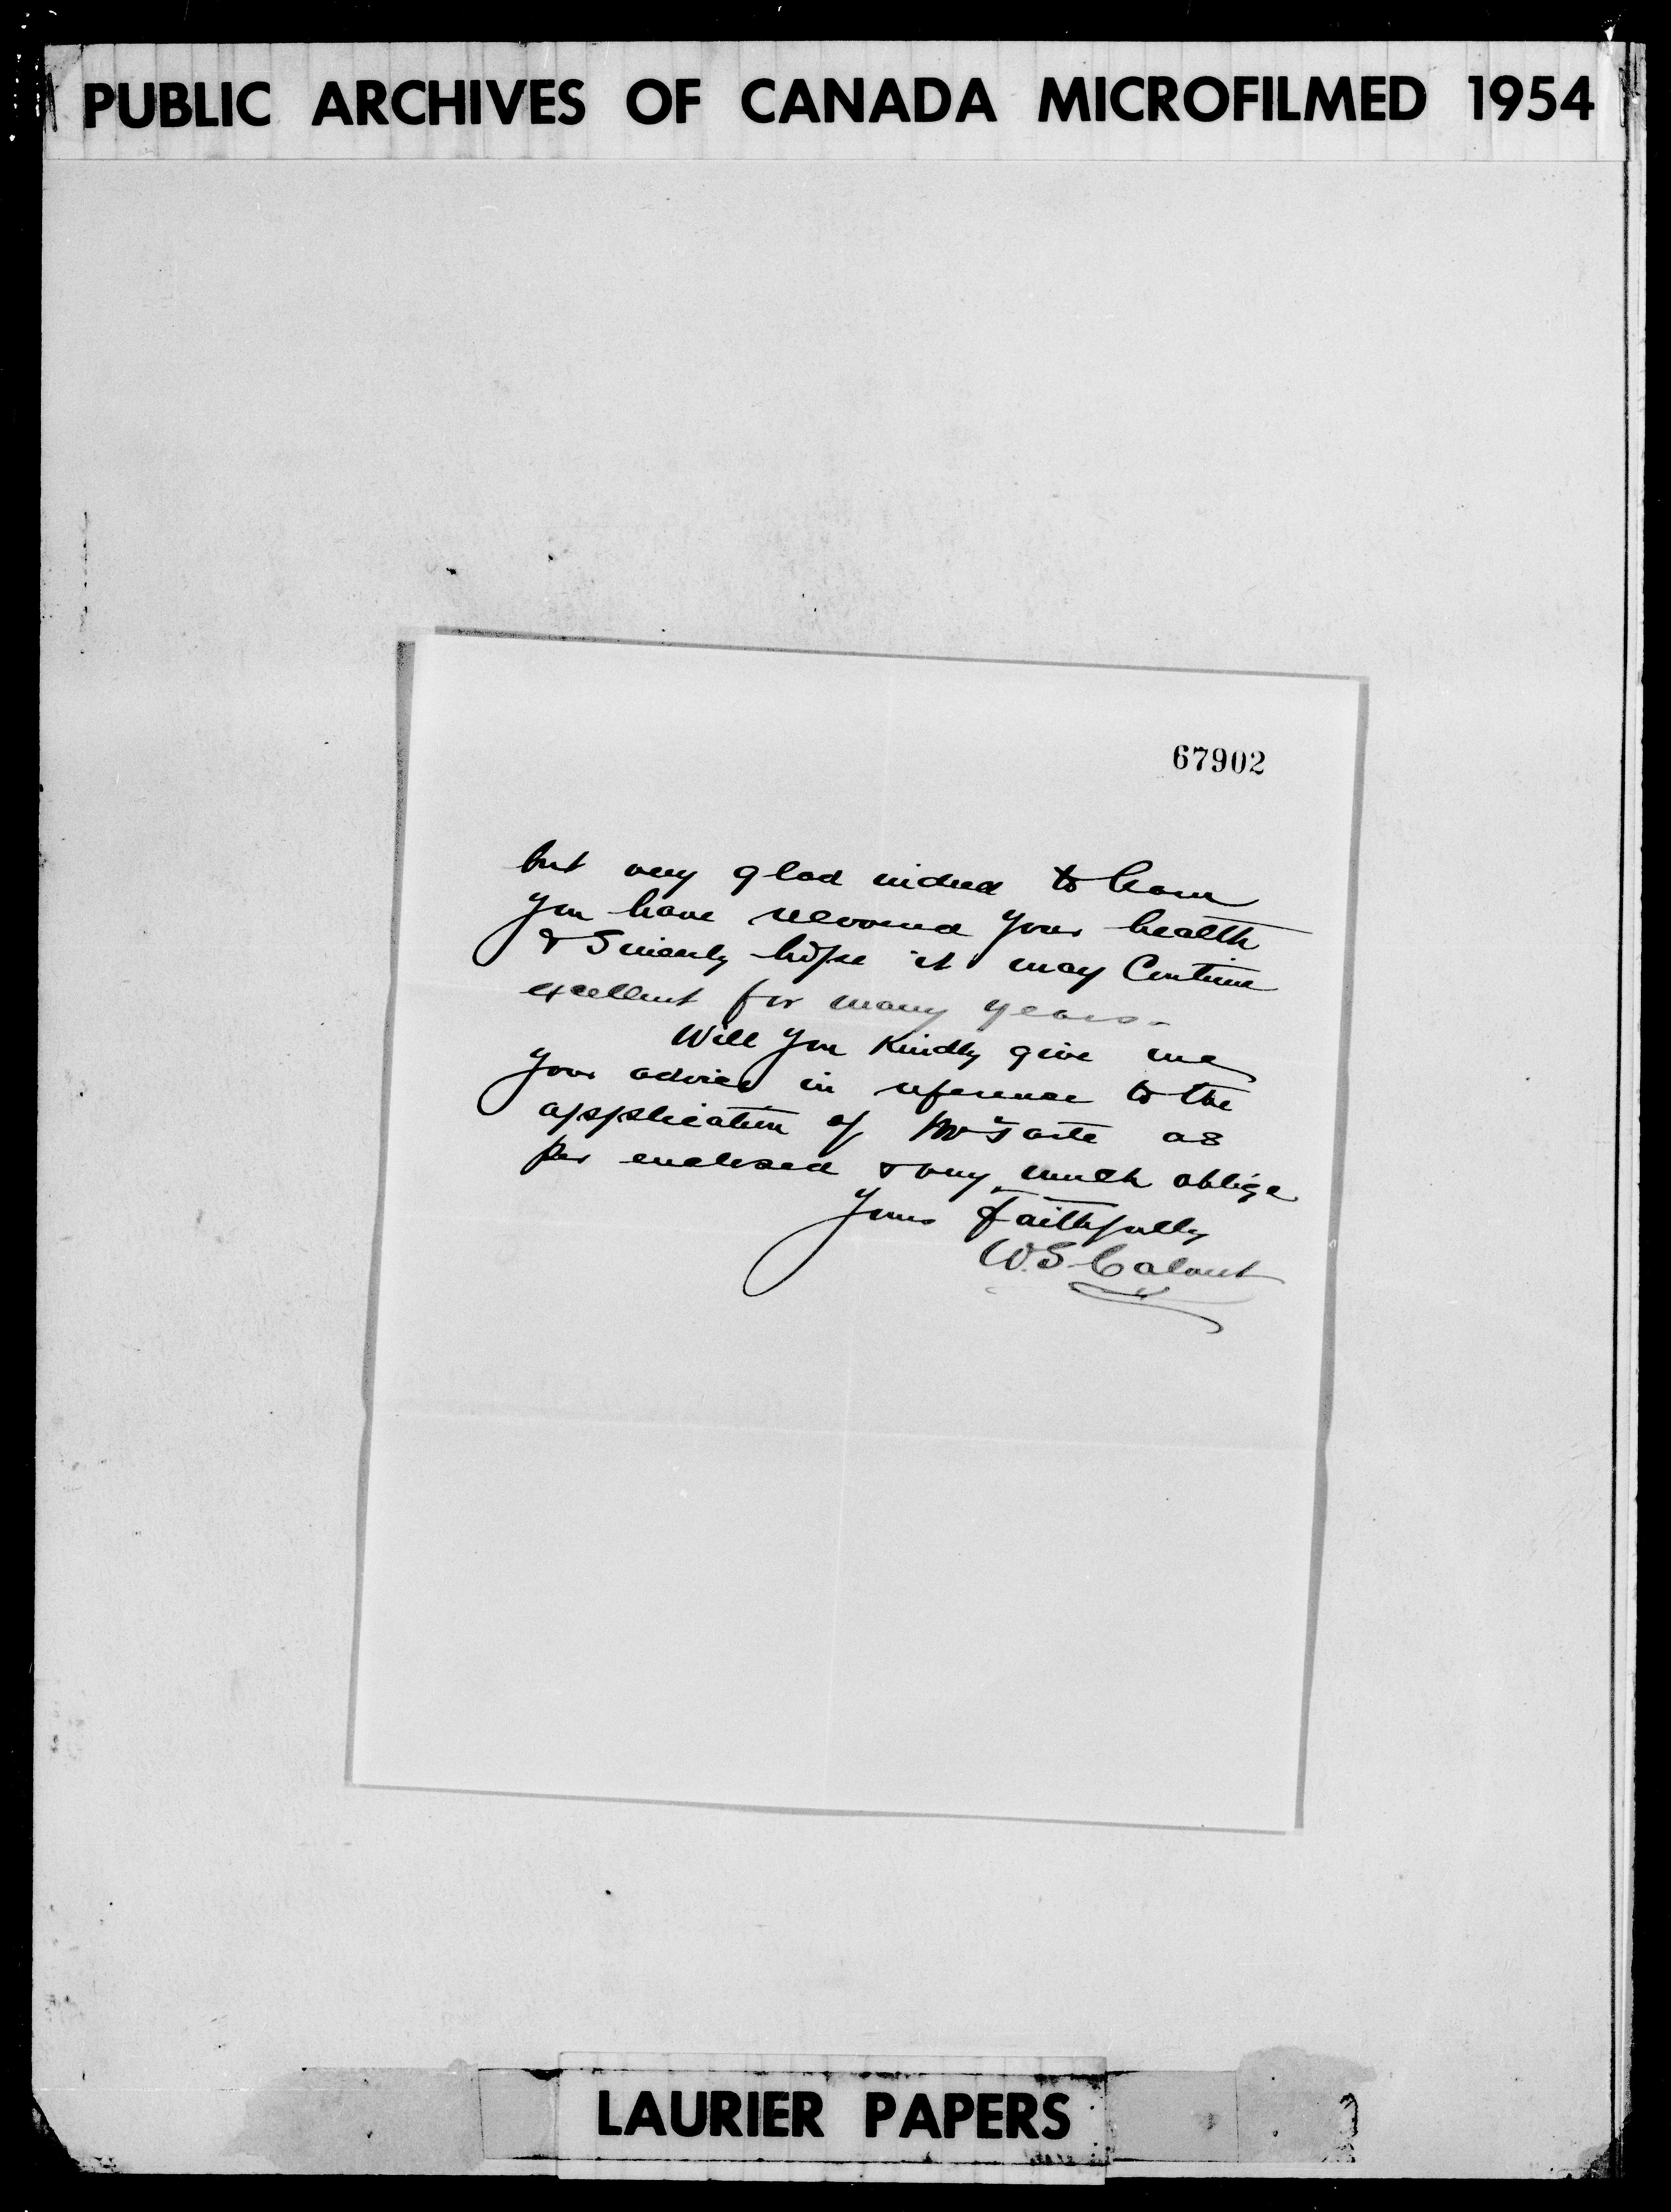 PUBLIC ARCHIVES OF CANADA MICROFILMED 1954
67902
but very glad indeed to learn
you have recovered your health
& Sincerely hope it may Continue
excellent for many years.
Will you Kindly give me
your advice in reference to the
application of as
per enclosed & very much oblige
Yours Faithfully
W.S. Calvert
LAURIER PAPERS